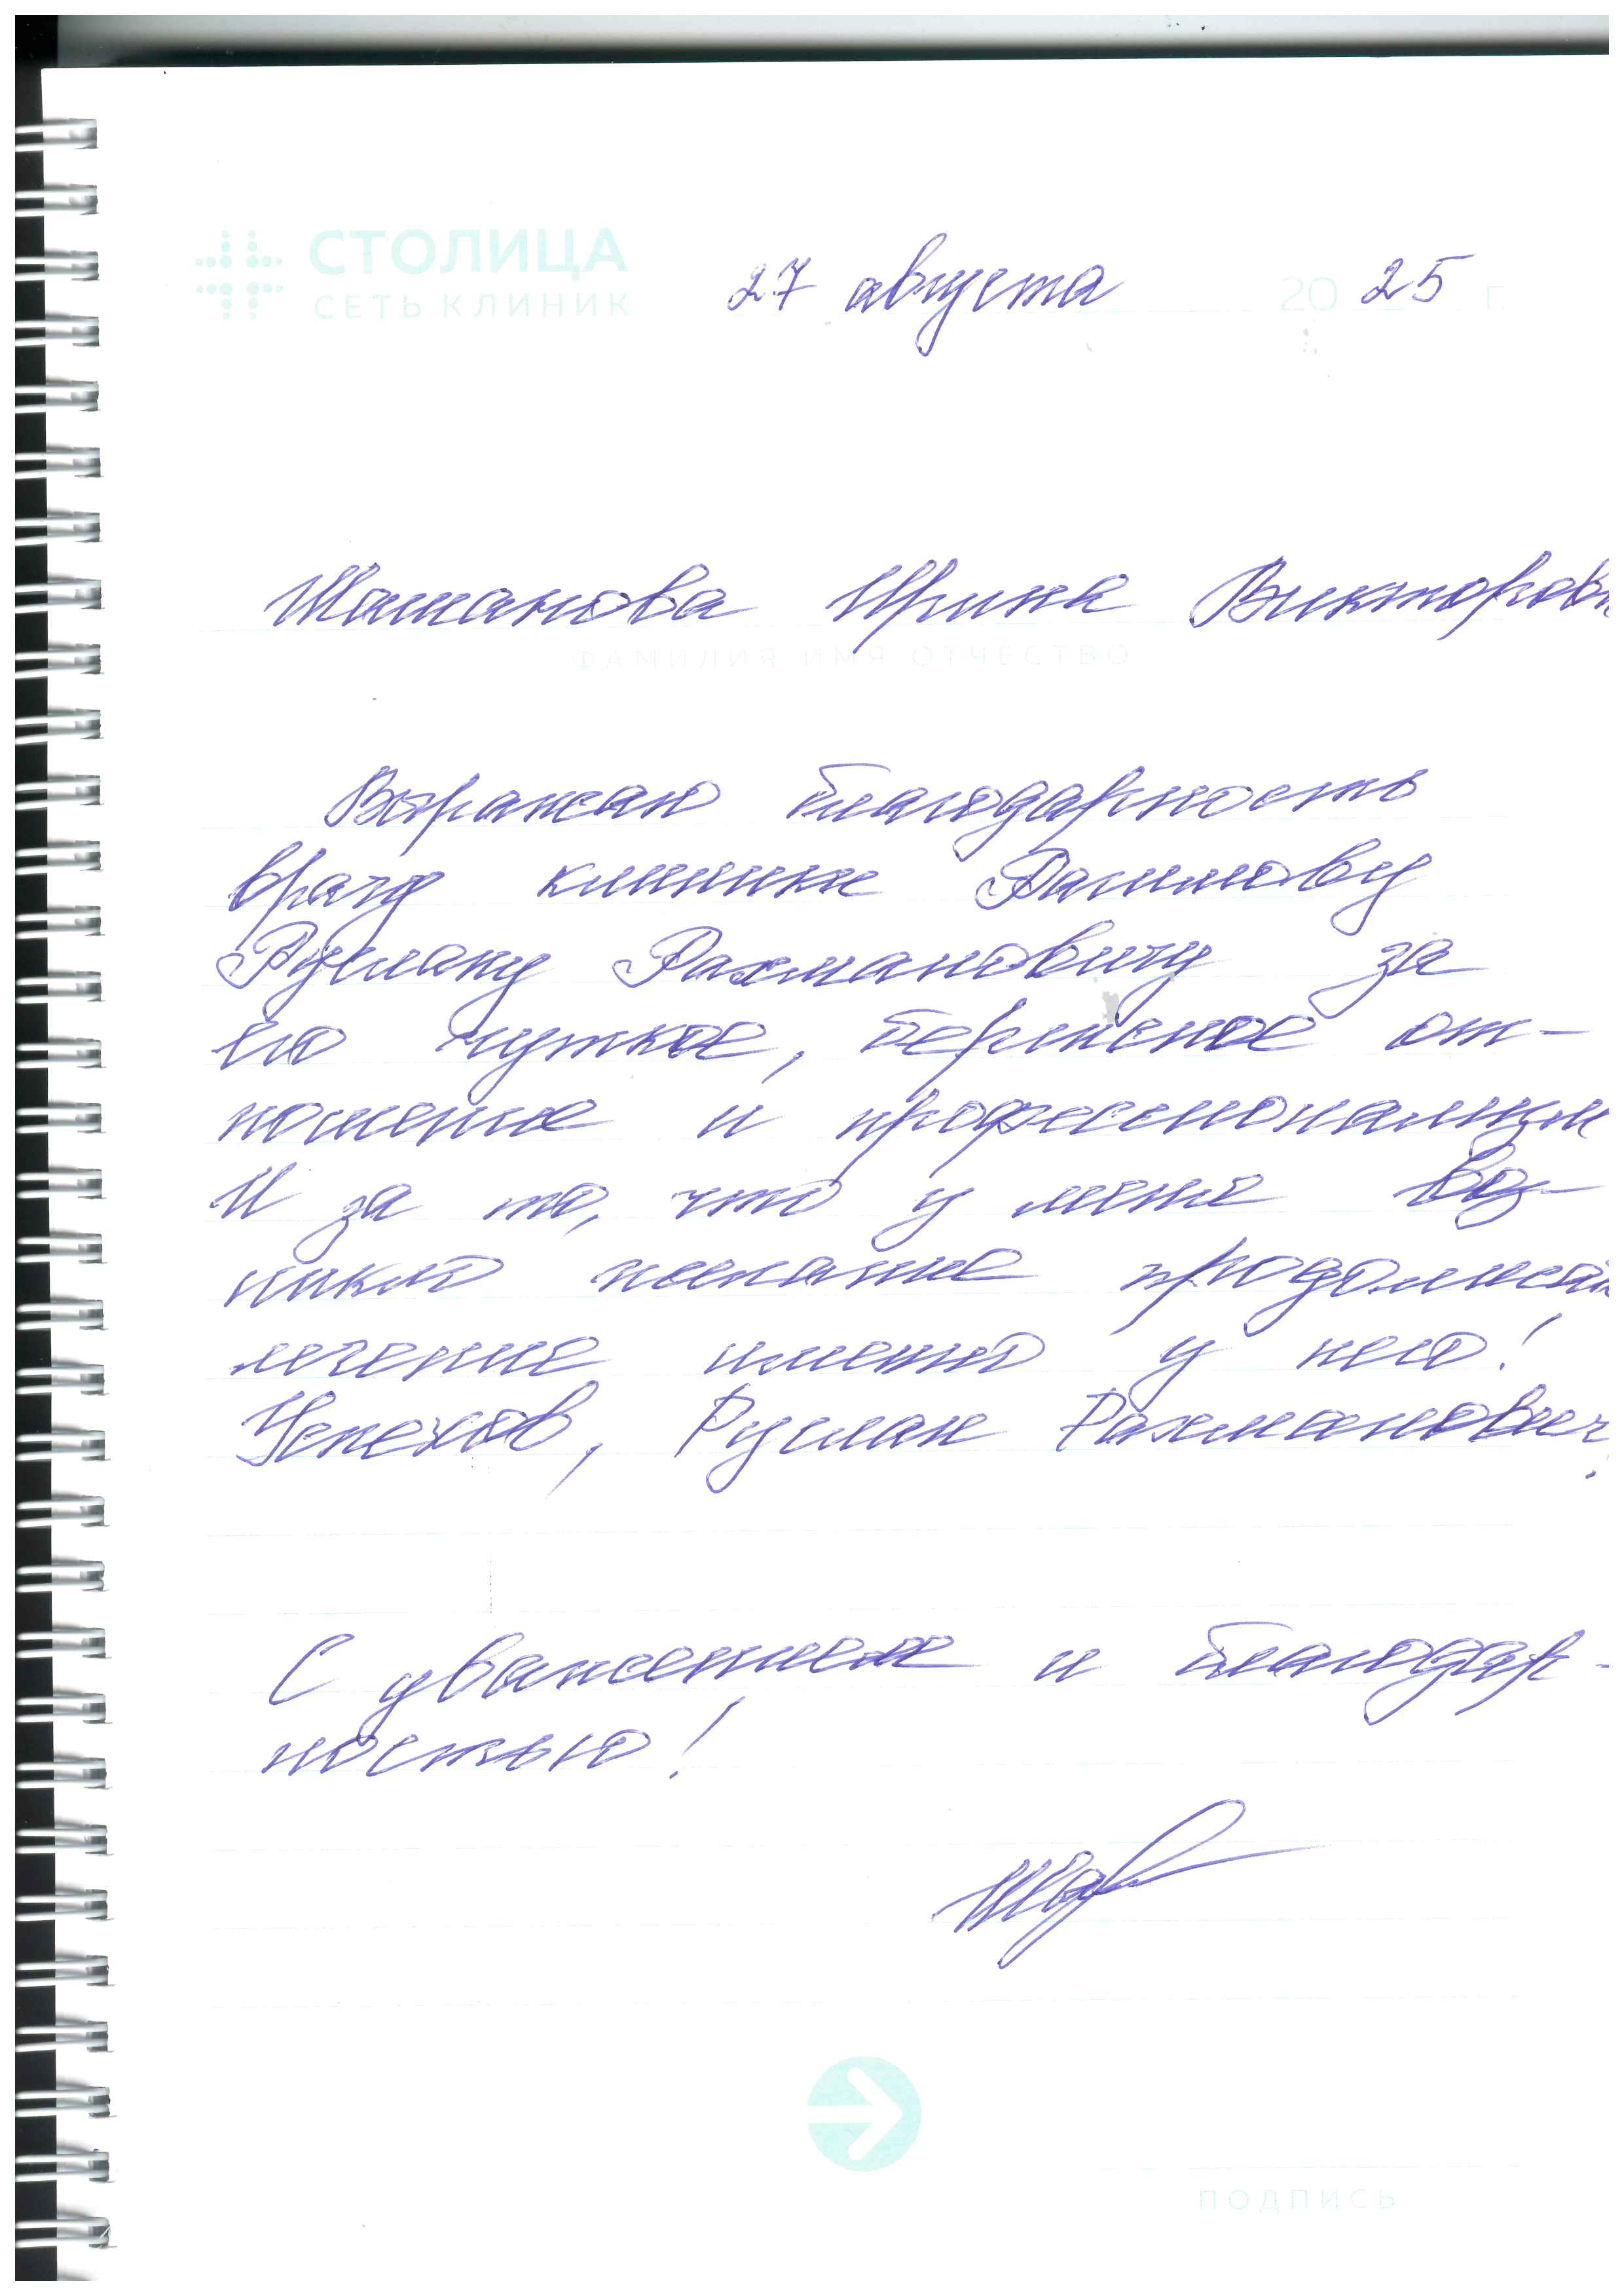 СТОЛИЦА
СЕТЬ КЛИНИК
27 августа 2025 г.
Ирина Викторовн
ФАМИЛИЯ ИМЯ ОТЧЕСТВО
Выражаю благодарность
врачу клиники
Руслану Рахмановичу за
его чуткое, бережное от-
ношение и профессионализм
И за то, что у меня воз-
никло желание продолжат
лечение именно у него!
Успехов, Руслан Рахманович!
С уважением и благодар-
ностью!
ПОДПИСЬ